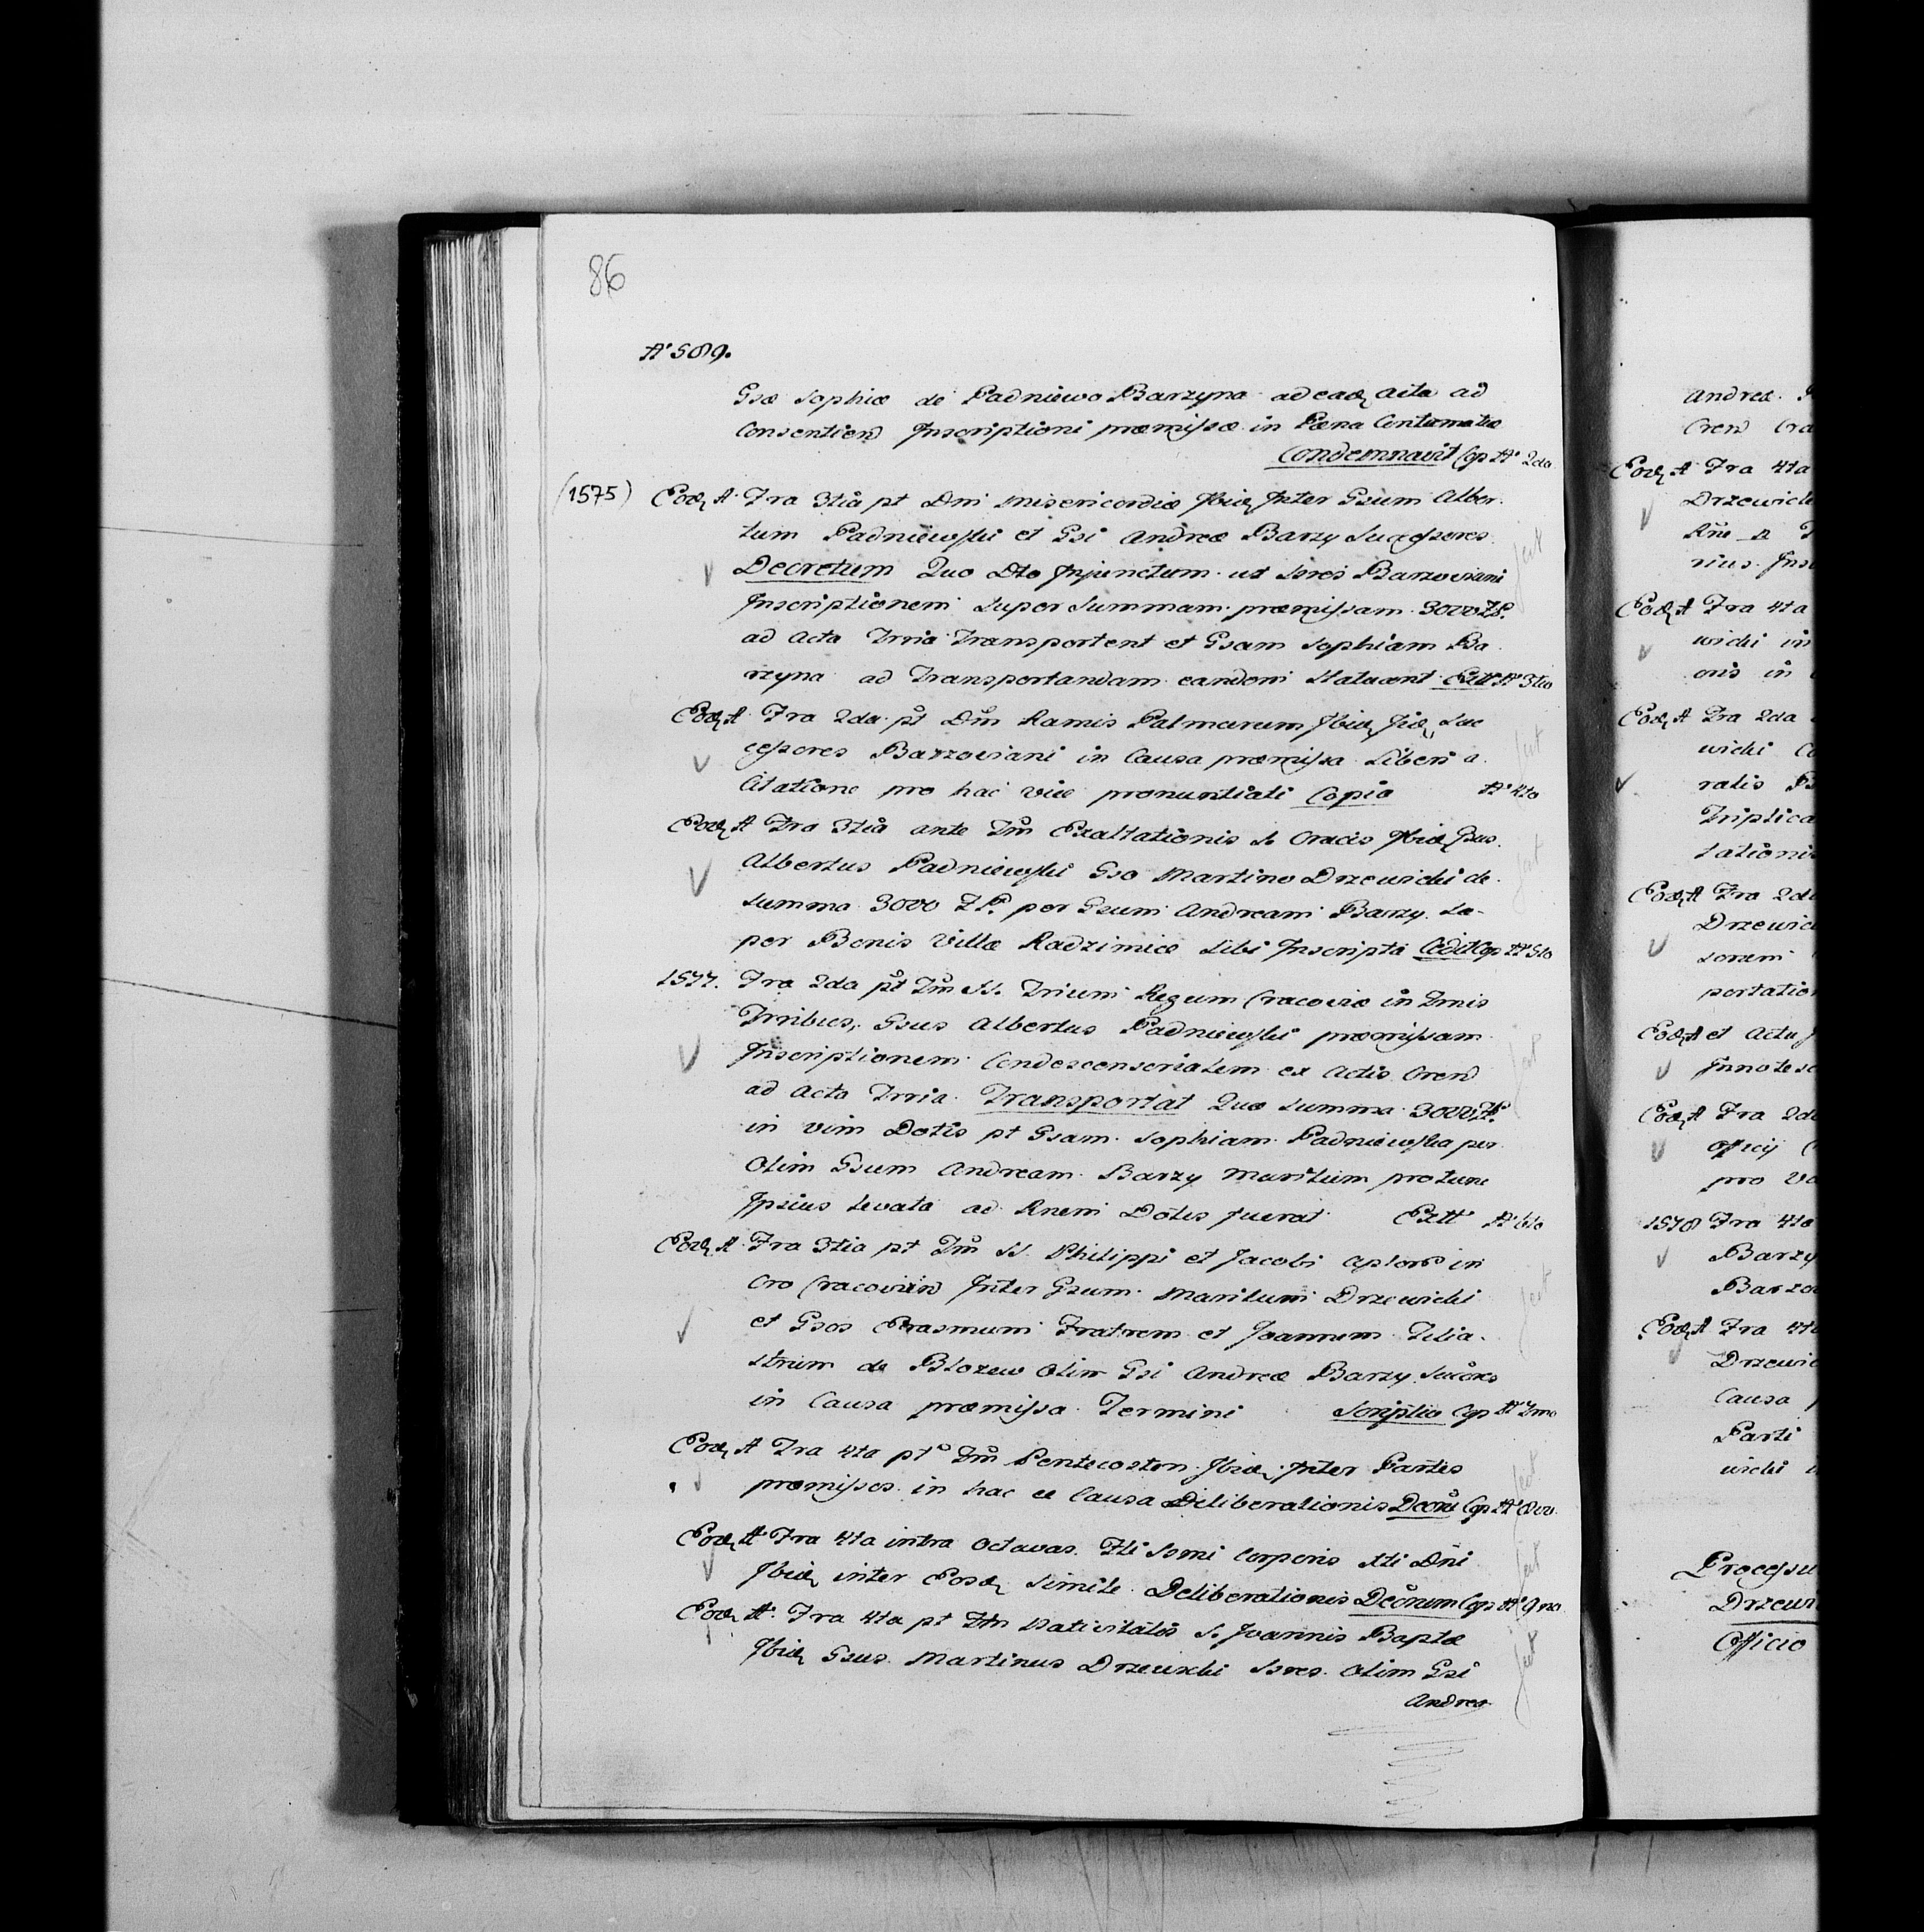 86
A° 589.
Gsæ Sophiæ de Padniewo Barzyna ad eadq Acta ad
Consentiend Inscriptioni præmissæ in Pæna Contumatiæ
Condemnavit Cop A° 2do
(1575) Eodq A° Fra 3tia pt Dni Misericordiæ Ibidq Inter Gsum Alber-
tum Padniewski et Gsi Andreæ Barzy Sucessores
Decretum Quo Dto Injunctum ut Sores Barzoviani
Inscriptionem super Summam præmissam 3000 ZP.
ad Acta Trria Transportent et Gsam Sophiam Ba
rzyna ad Transportandam eandem Statuant Extt A° 3tio
Eodq A° Fra 2da pt Dm Ramis Palmarum Ibidq Iidq Suc
cessores Barzoviani in Causa præmissa Liberi a
Citatione pro hac vice pronuntiati Copia A° 4to
Eodq A Fra 3tia ante Fm Exaltationis S. Crucis Ibidq Gsus
Albertus Padniewski Gso Martino Drzewicki de
Summa 3000 ZP. per Gsum Andream Barzy Su-
per Bonis Villæ Radzimice Sibi Inscripta Cedit Cop A° 5to
1577. Fra 2da pt Fm SS. Trium Regum Cracoviæ in Tmis
Trribus, Gsus Albertus Padniewski præmissam
Inscriptionem Condescensorialem ex Actis Cren
ad Acta Trria Transportat Quæ Summa 3000 ZP.
in vim Dotis pt Gsam Sophiam Padniewska per
Olim Gsum Andream Barzy Maritum pro tunc
Ipsius Levata ad Rnem Dotis fuerat Extt A° 6to
Eodq A° Fra 3tia pt Fm SS. Philippi et Jacobi Aplor in
Cro Cracovien Inter Gsum Maritum Drzewicki
et Gsos Erasmum Fratrem et Joannem Filia-
strum de Blozew Olim Gsi Andreæ Barzy Sucres
in Causa præmissa Termini Scriptio Cop A° 7mo
Eodq A Fra 4ta pt Fm Pentecosten Ibidq Inter Partes
præmissas in hac ce Causa Deliberationis Decrm Cop A° 8vo
Eodq A° Fra 4ta intra Octavas Fti Ssmi Corporis Xti Dni
Ibidq inter Eosdq Simile Deliberationis Decrum Cop A° 9no
Eodq A° Fra 4ta pt Fm Nativitatis S. Joannis Baptæ
Ibidq Gsus Martinus Drzewicki Sores Olim Gsi
Andreæ
Andreæ
Cren Cra
Eodq A Fra 4ta
Drzewick
Eodq A Fra 4ta
wicki in
oris in
Eodq A Fra 2da
wicki
ralis
Triplica
tationis
Eodq A Fra 2da
Drzewick
sorem
portation
Eodq A et Actu
Innotesc
Eodq A Fra 2da
Officij
pro
1578 Fra 4ta
Barzy
Barzo
Eodq A Fra 4ta
Drzewic
Causa
Parti
wicki
Processu
Drzewi
Officio